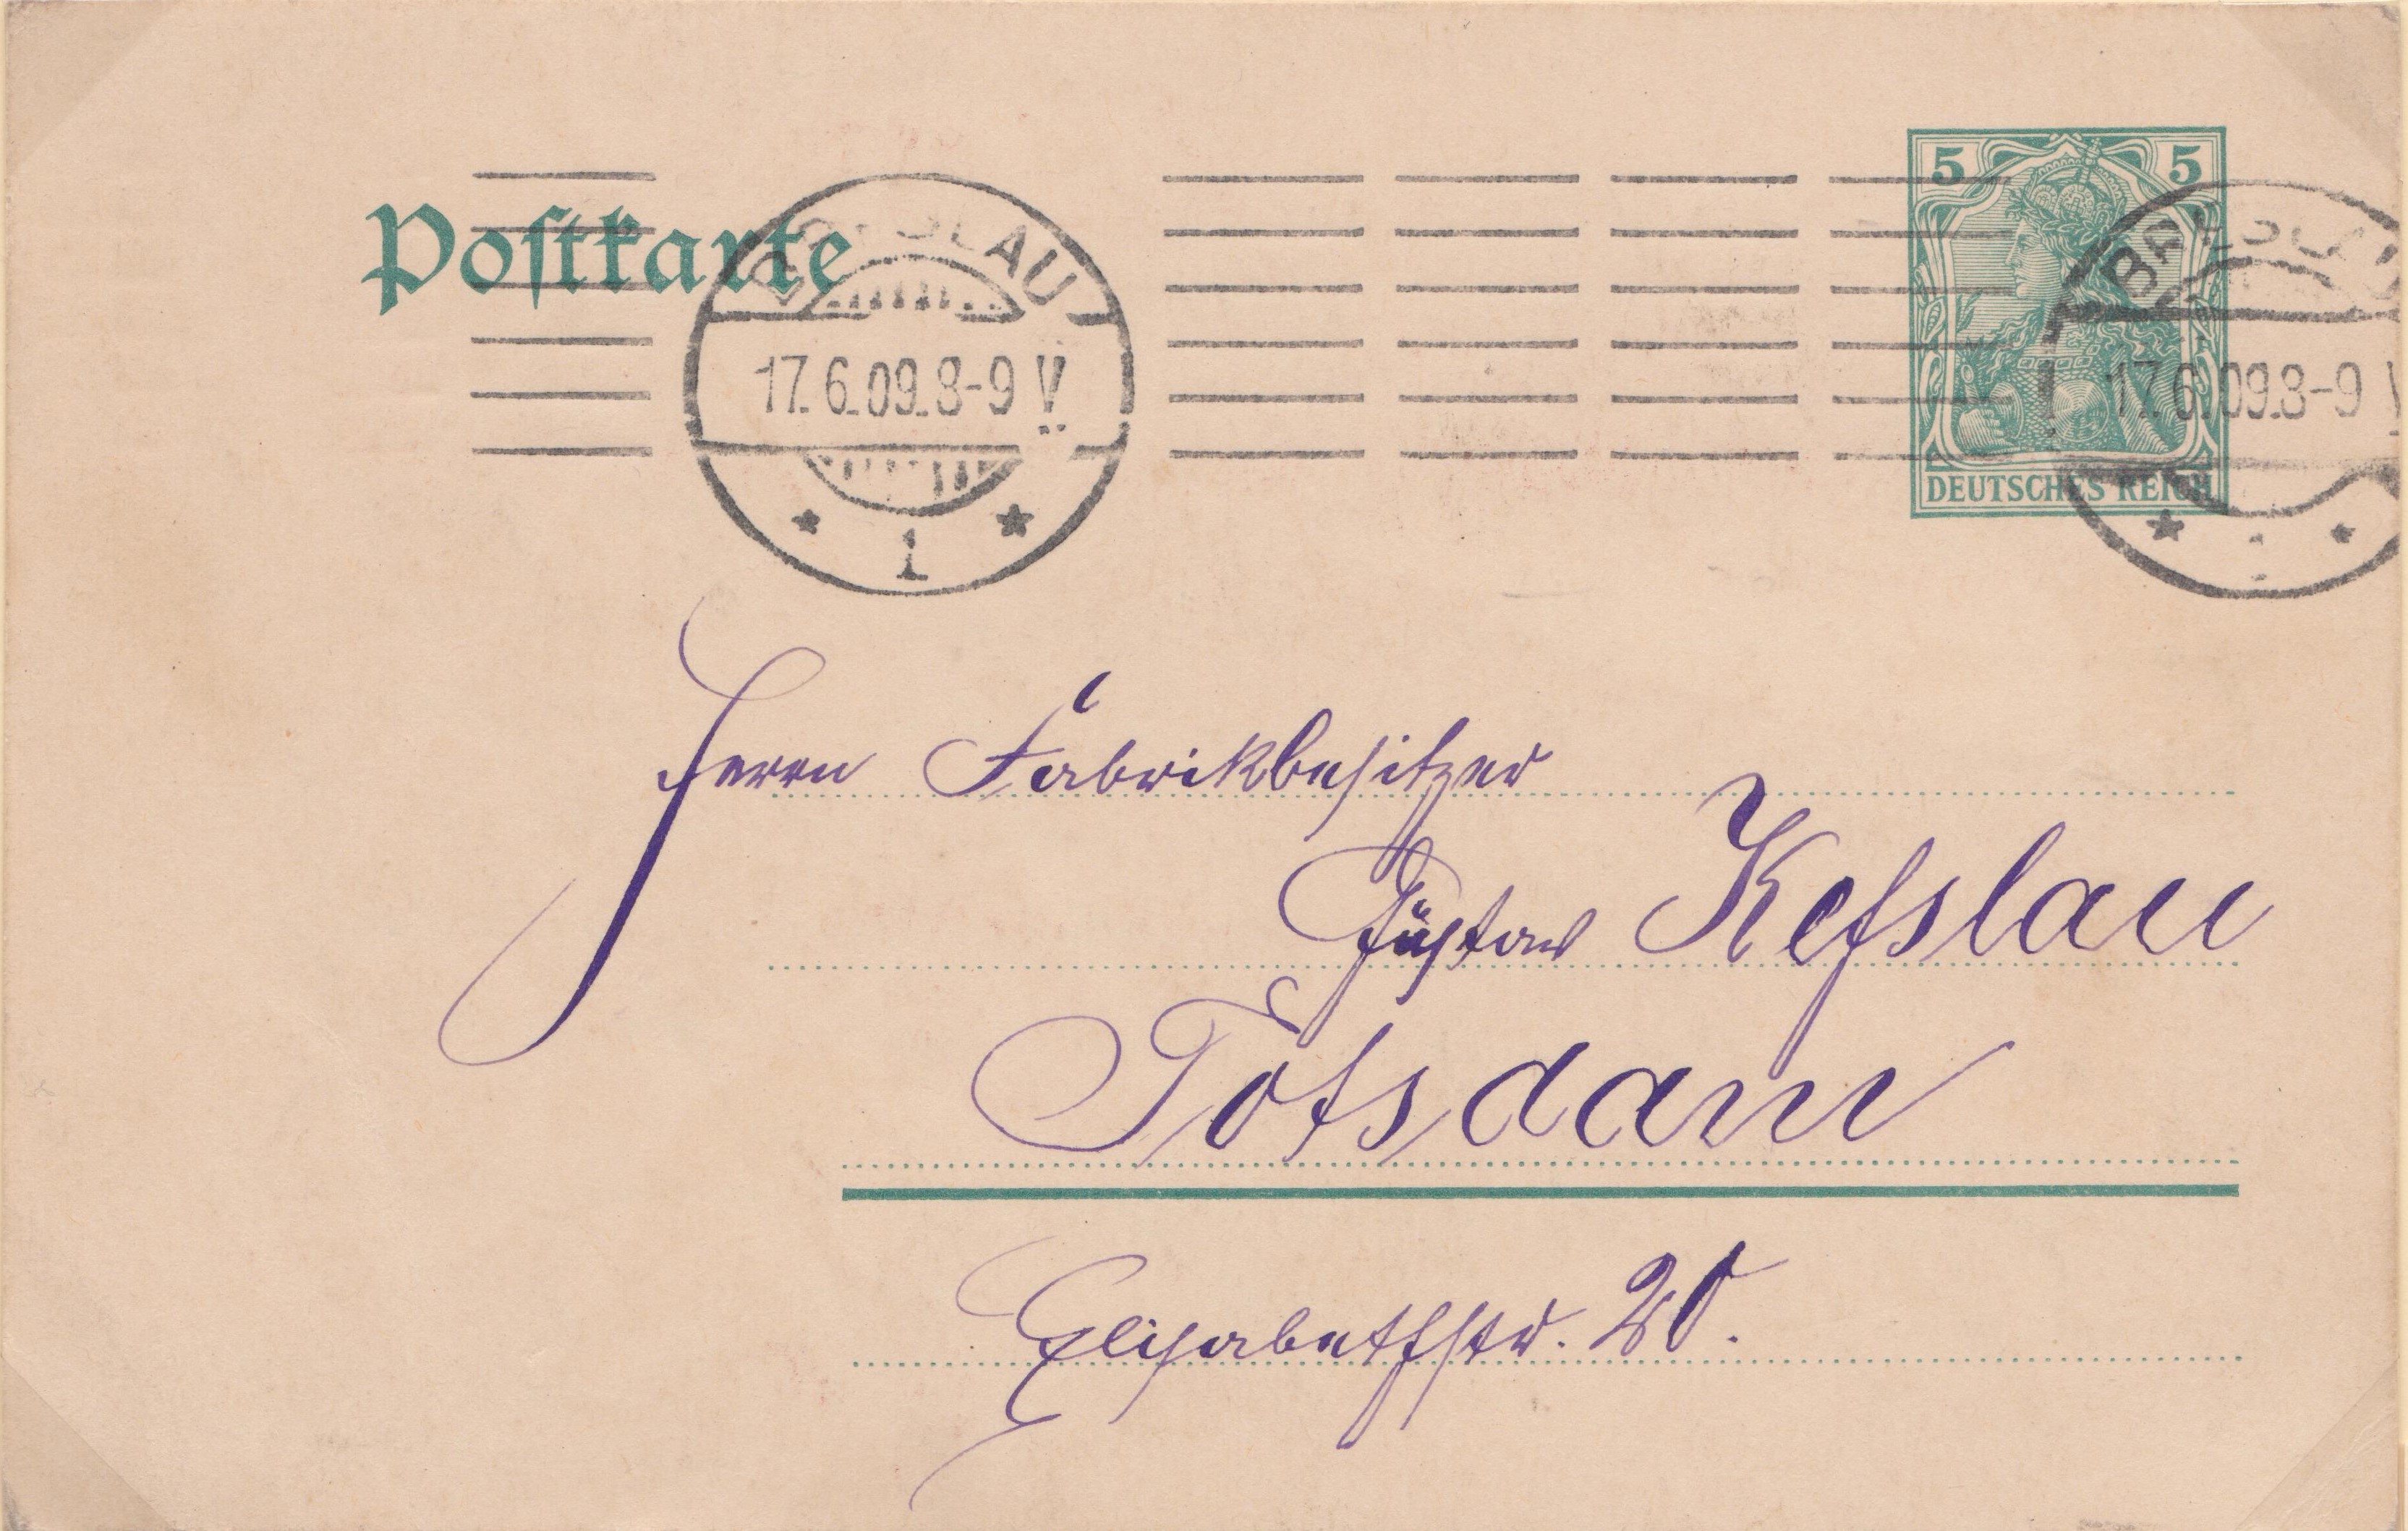 Postkarte
BRESLAU
17.6.09.8-9 V
1
5 5
DEUTSCHES REICH
BRESLAU
17.6.09.8-9 V
Herrn Fabrikbesitzer
Gustav Kesslau
Potsdam
Elisabethstr. 20.